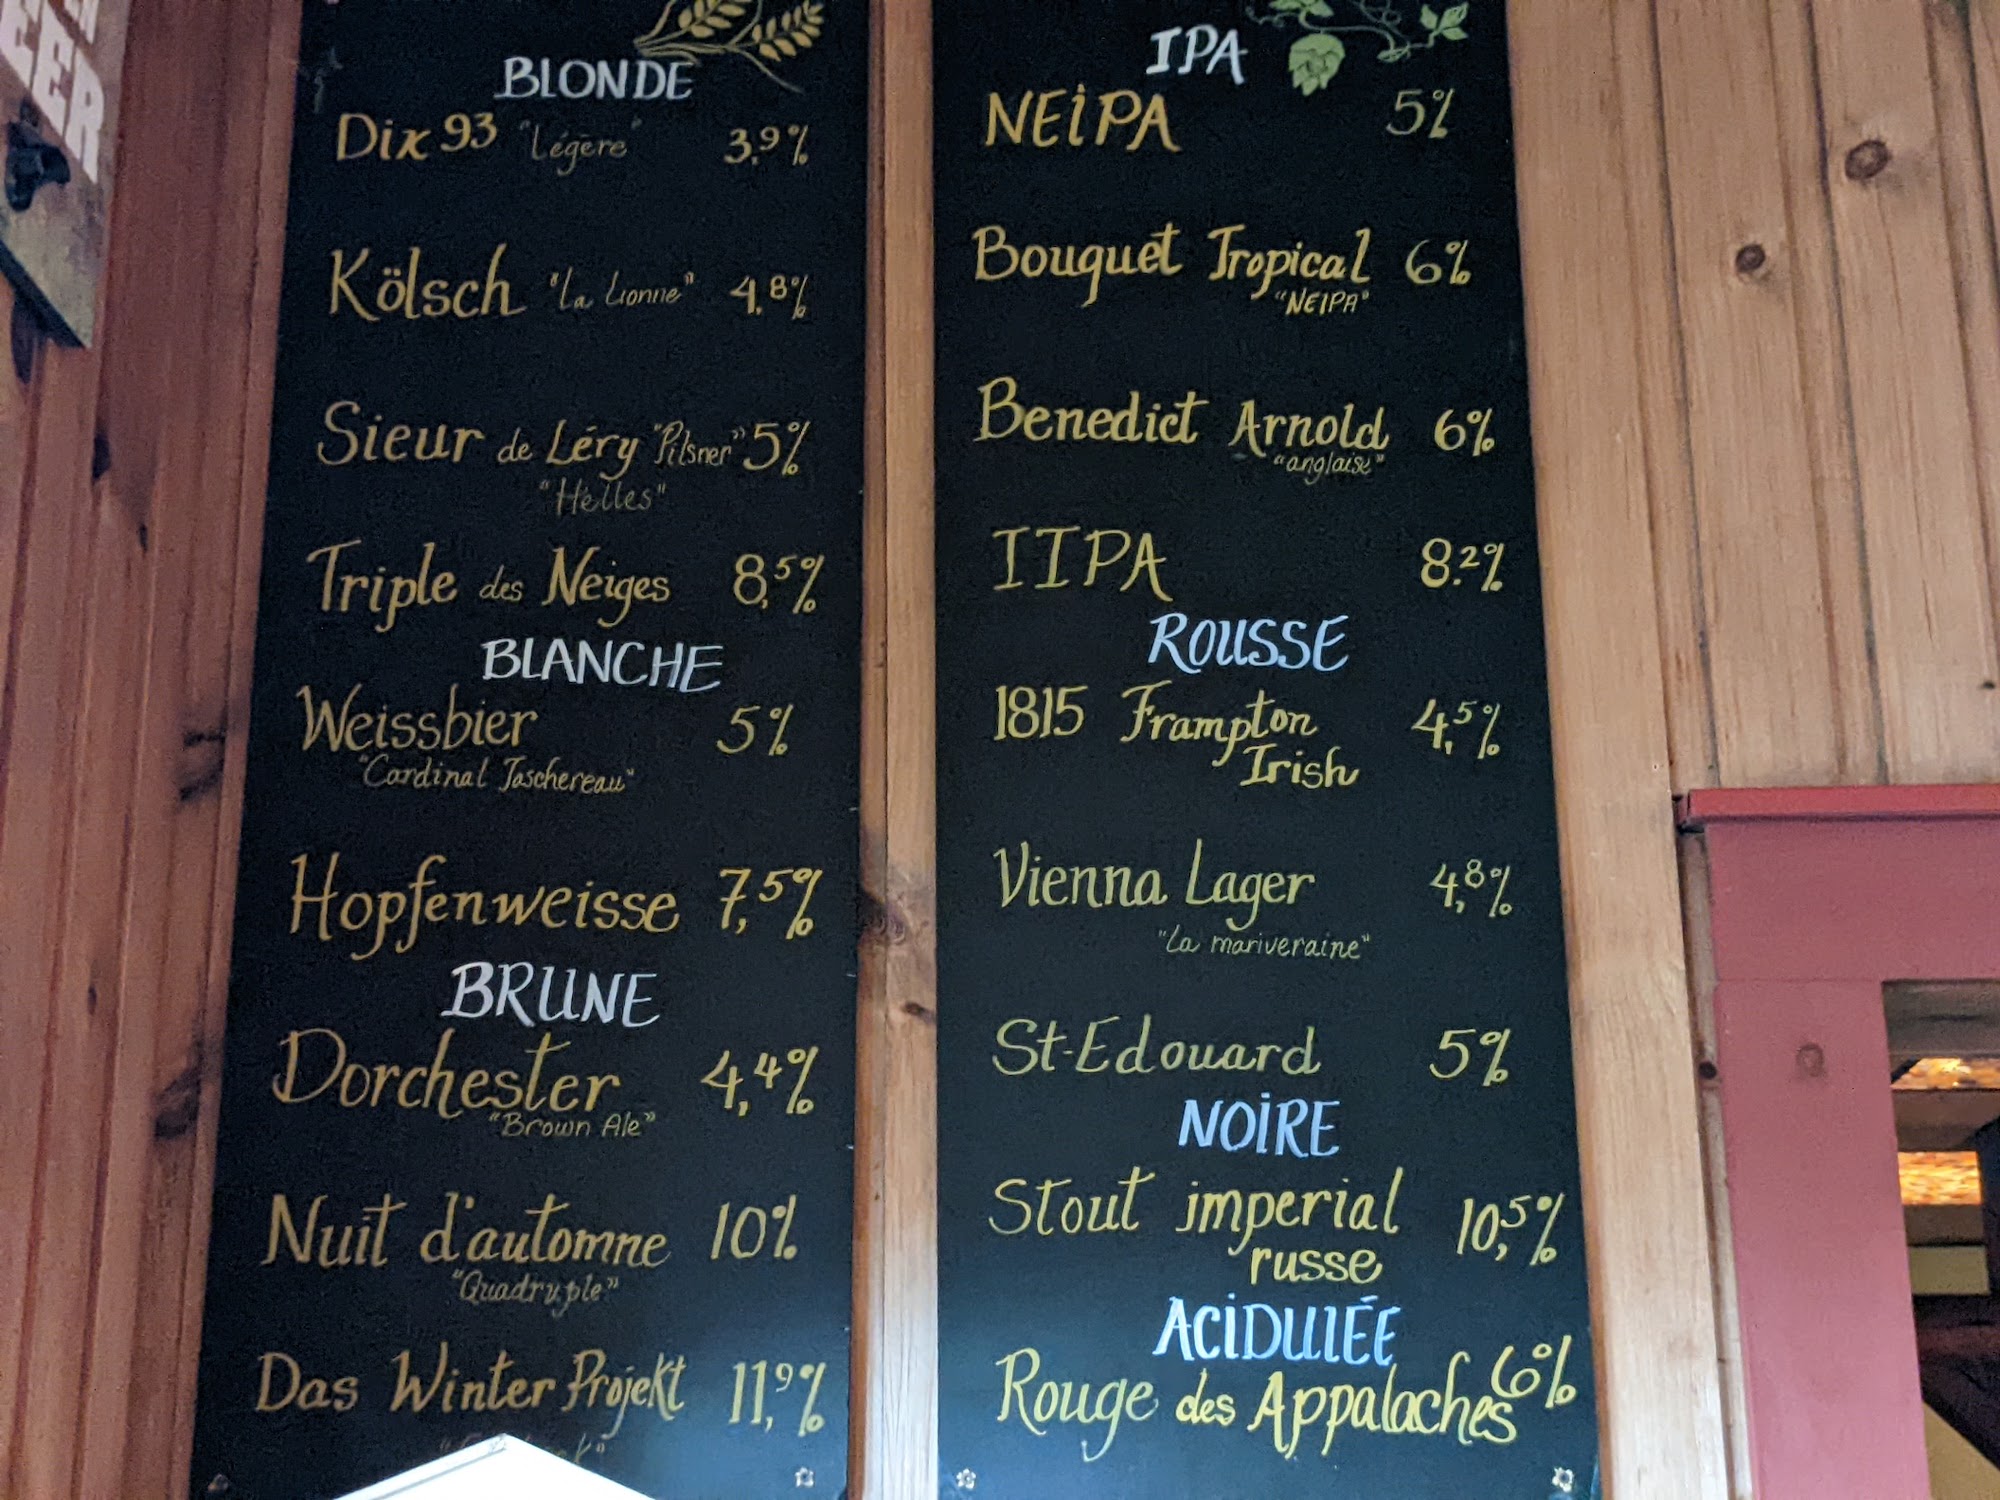 EER
BLONDE
Dix 93 "Légère" 3,9%
Kölsch "La Lionne" 4,8%
Sieur de Léry "Pilsner" 5%
"Helles"
Triple des Neiges 8,5%
BLANCHE
Weissbier 5%
"Cardinal Taschereau"
Hopfenweisse 7,5%
BRUNE
Dorchester 4,4%
"Brown Ale"
Nuit d'automne 10%
"Quadruple"
Das Winter Projekt 11,9%
IPA
NEiPA 5%
Bouquet Tropical 6%
"NEIPA"
Benedict Arnold 6%
"anglaise"
IIPA 8.2%
ROUSSE
1815 Frampton 4,5%
Irish
Vienna Lager 4,8%
"La mariveraine"
St-Edouard 5%
NOiRE
Stout imperial 10,5%
russe
ACiDULÉE
Rouge des Appalaches 6%